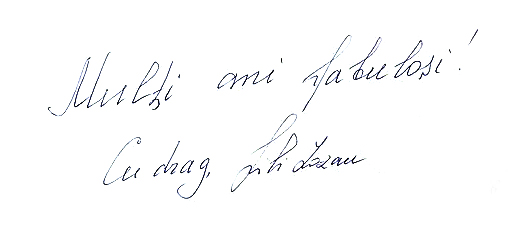 Mulți ani fabuloși!
Cu drag,